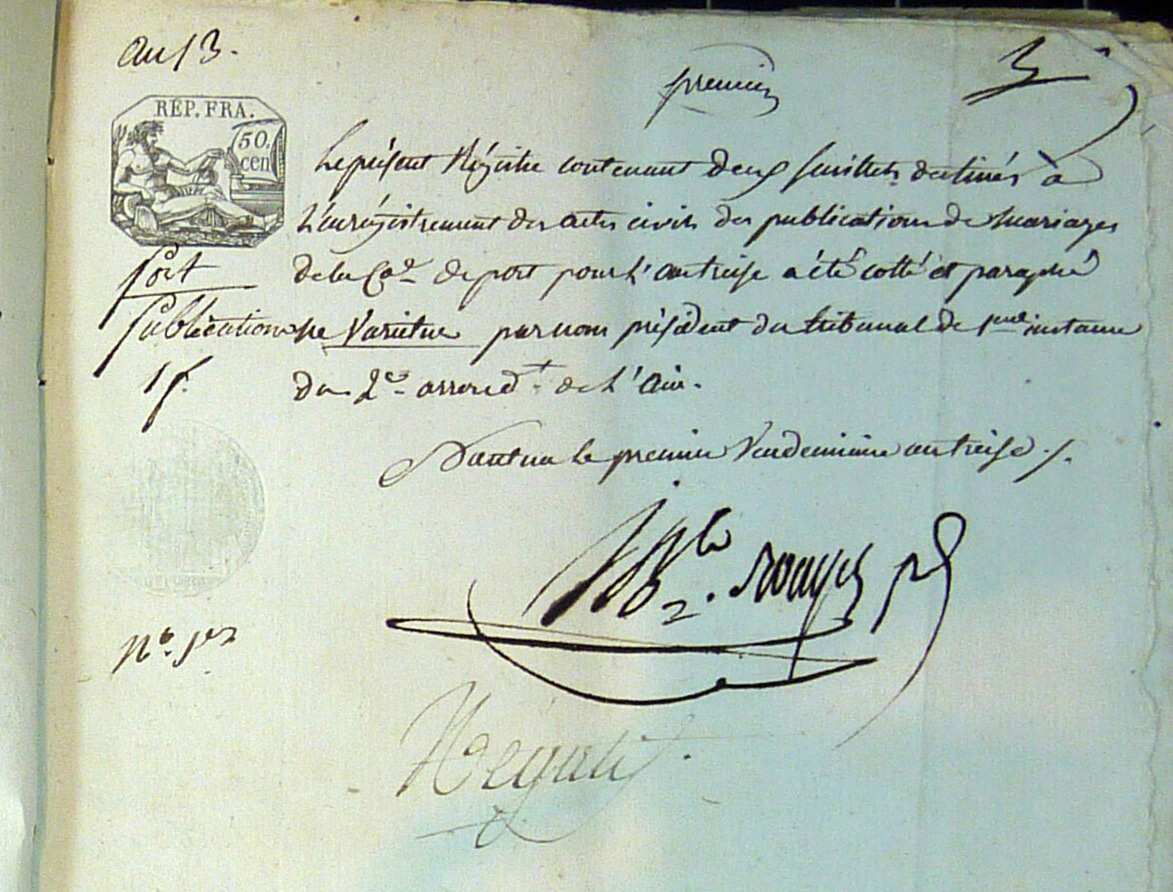 an 13.
premier
RÉP. FRA.
50.
cen
Le présent Régistre contenant deux feuillets destinés à
L'enrégistrement des actes civils des publications de mariages
Port
de la Co.ne de port pour L'an treise a été cotté et paraphé
Publications
ne Varietur par nous président du tribunal de 1ere instance
1 f.
du 2e. arrond.t de L'Ain.
Nantua le premier Vendemiaire an treise ./.
No. 1er
Négatif.